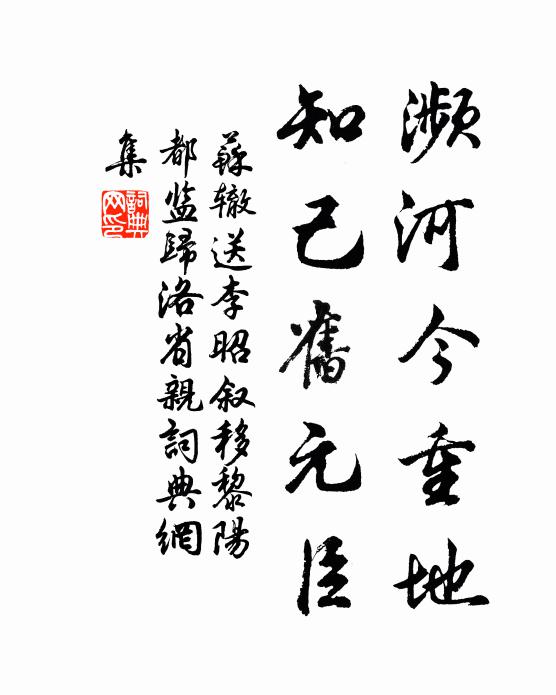 濒河今重地
知己舊元臣
蘇辙送李昭叙移黎陽
都监歸洛省親詞典網
集
詞典
网印